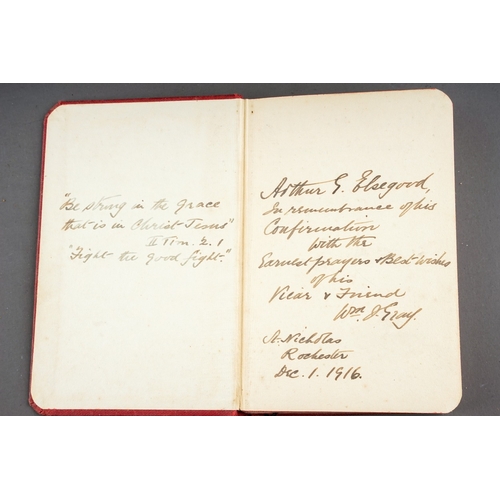 "Be strong in the grace
that is in Christ Jesus"
II Tim. 2.1
"Fight the good fight."
Arthur G. Elsegood,
In remembrance of his
Confirmation
with the
Earnest prayers & Best wishes
of his
Vicar & Friend
Wm. J. Gray.
St. Nicholas
Rochester
Dec. 1. 1916.